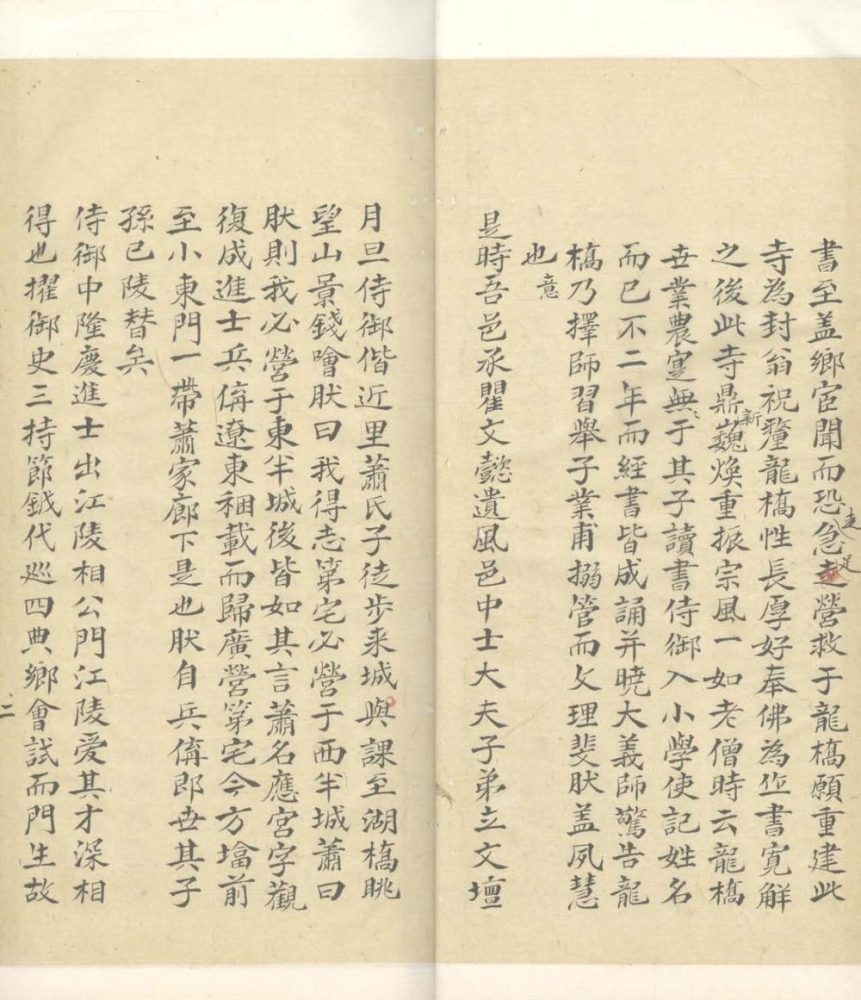 書至盖鄉宦聞而恐急走營救于龍橋願重建此
寺為封翁祝釐龍橋性長厚好奉佛為作書寬解
之後此寺鼎新巍煥重振宗風一如老僧時云龍橋
世業農寔無于其子讀書侍御入小學使記姓名
而已不二年而經書皆成誦并曉大義師驚告龍
橋乃擇師習舉子業甫搦管而文理斐肰盖夙慧
也意
是時吾邑承瞿文懿遺風邑中士大夫子弟立文壇
月旦侍御偕近里蕭氏子徒步来城與課至湖橋眺
望山景錢噲肰曰我得志第宅必營于西半城蕭曰
肰則我必營于東半城後皆如其言蕭名應宮字觀
復成進士兵備遼東稛載而歸廣營第宅今方塔前
至小東門一帶蕭家廊下是也肰自兵備郎世其子
孫已陵替矣
侍御中隆慶進士出江陵相公門江陵爱其才深相
得也擢御史三持節鉞代巡四典鄉會試而門生故
二